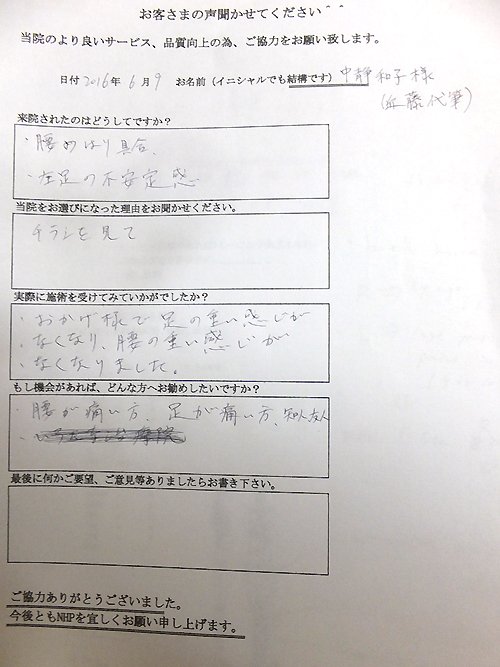 お客さまの声聞かせてください＾＾
当院のより良いサービス、品質向上の為、ご協力をお願い致します。
日付 2016年 6月9 お名前（イニシャルでも結構です）中静和子様
(近藤代筆)
来院されたのはどうしてですか？
・腰のはり具合、
・左足の不安定感
当院をお選びになった理由をお聞かせください。
チラシを見て
実際に施術を受けてみていかがでしたか？
・おかげ様で足の重い感じが
・なくなり、腰の重い感じが
・なくなりました。
もし機会があれば、どんな方へお勧めしたいですか？
・腰が痛い方、足が痛い方、知人友人
最後に何かご要望、ご意見等ありましたらお書き下さい。
ご協力ありがとうございました。
今後ともNHPを宜しくお願い申し上げます。